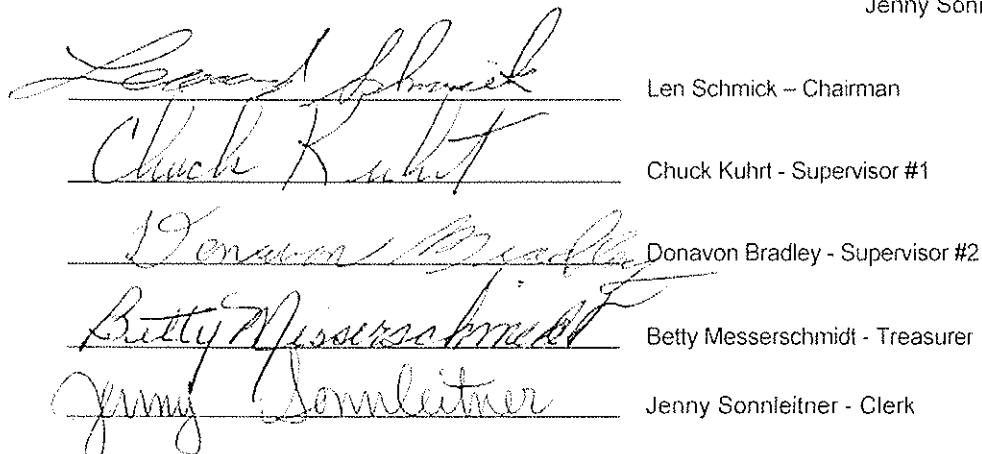 Jenny Sonn
Leonard Schmick Len Schmick – Chairman
Chuck Kuhrt Chuck Kuhrt - Supervisor #1
Donavon Bradley Donavon Bradley - Supervisor #2
Betty Messerschmidt Betty Messerschmidt - Treasurer
Jenny Sonnleitner Jenny Sonnleitner - Clerk